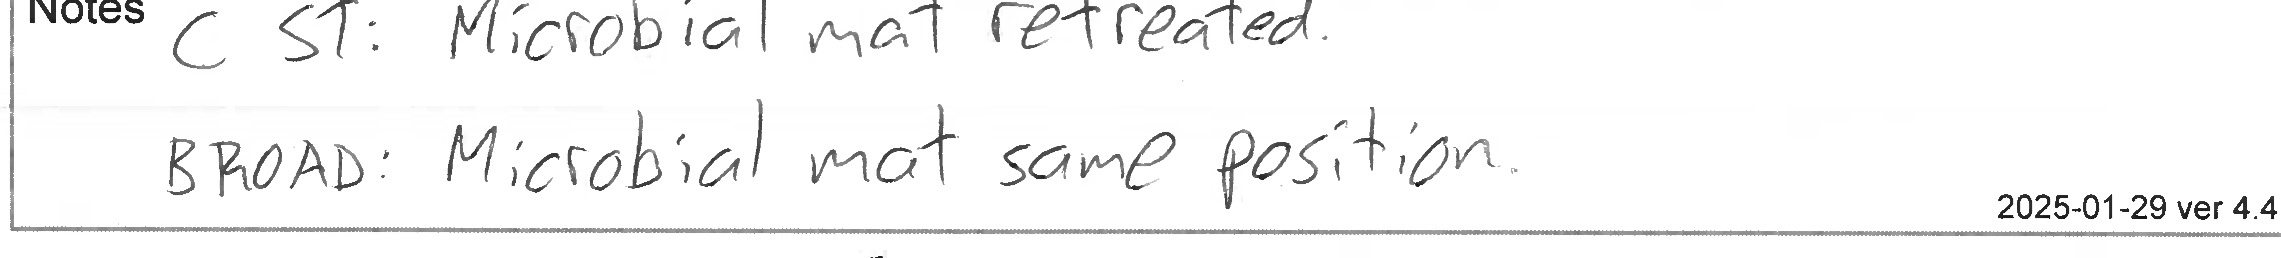 Notes
C ST: Microbial mat retreated.
BROAD: Microbial mat same position.
2025-01-29 ver 4.4